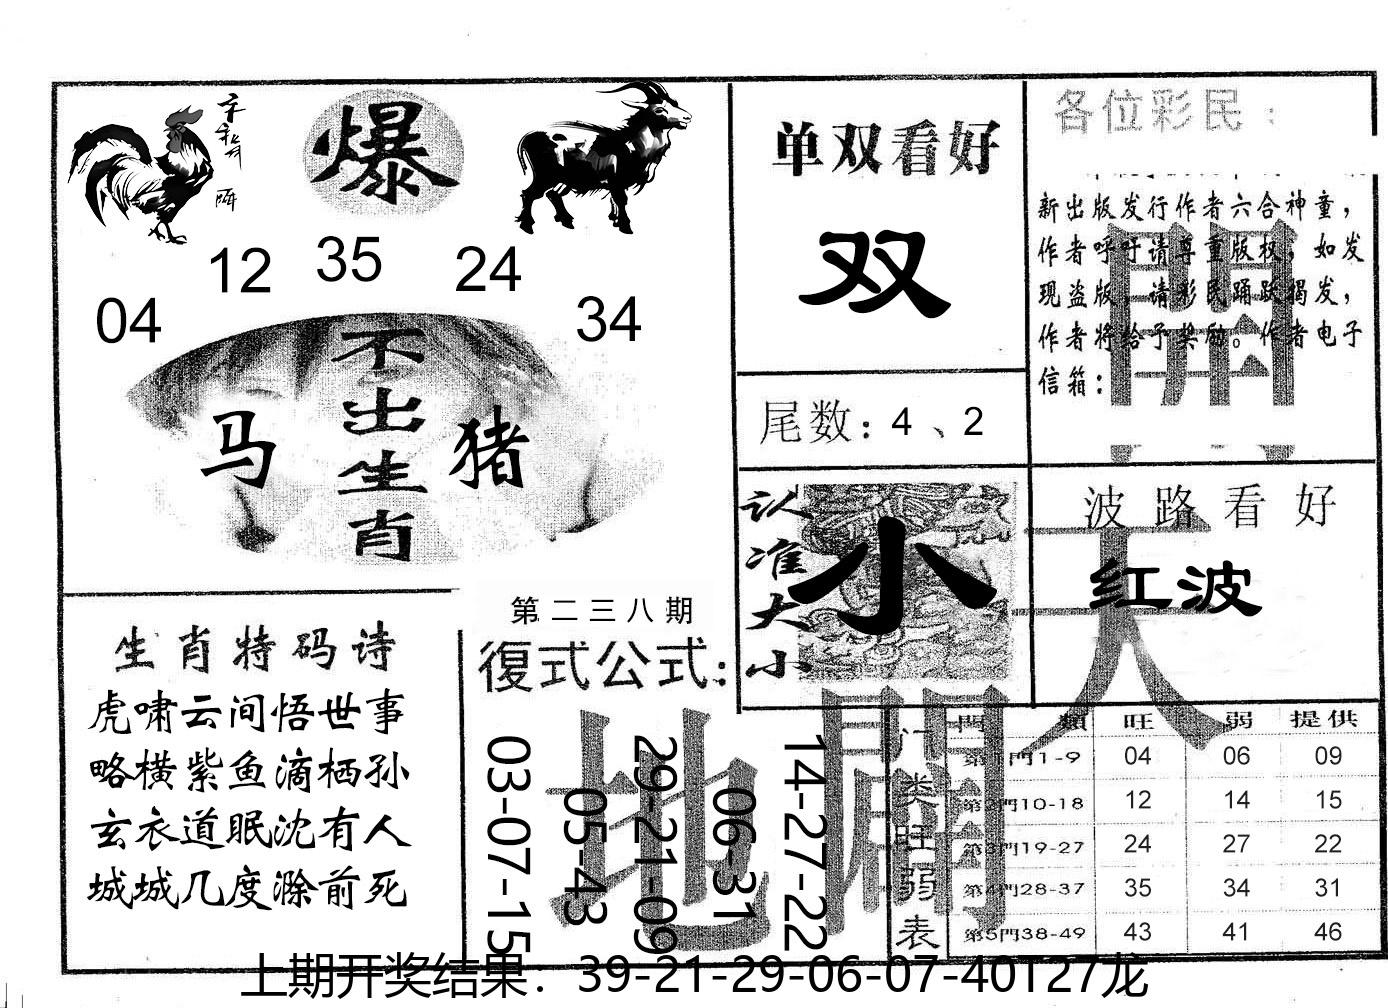 爆
12 35 24
04 34
不出生肖
马 猪
单双看好
双
尾数：4、2
各位彩民：
新出版发行作者六合神童，
作者呼吁请尊重版权，如发
现盗版，请彩民踊跃揭发，
作者将给予奖励。作者电子
信箱：
認准大小
小
波路看好
红波
生肖特码诗
虎啸云间悟世事
略横紫鱼滴栖孙
玄衣道眠沈有人
城城几度滁前死
第二三八期
復式公式：
03-07-15
05-43
29-21-09
06-31
14-27-22
天
地
開
闢
门类旺弱表
門類 旺 弱 提供
第1門1-9 04 06 09
第2門10-18 12 14 15
第3門19-27 24 27 22
第4門28-37 35 34 31
第5門38-49 43 41 46
上期开奖结果：39-21-29-06-07-40T27龙